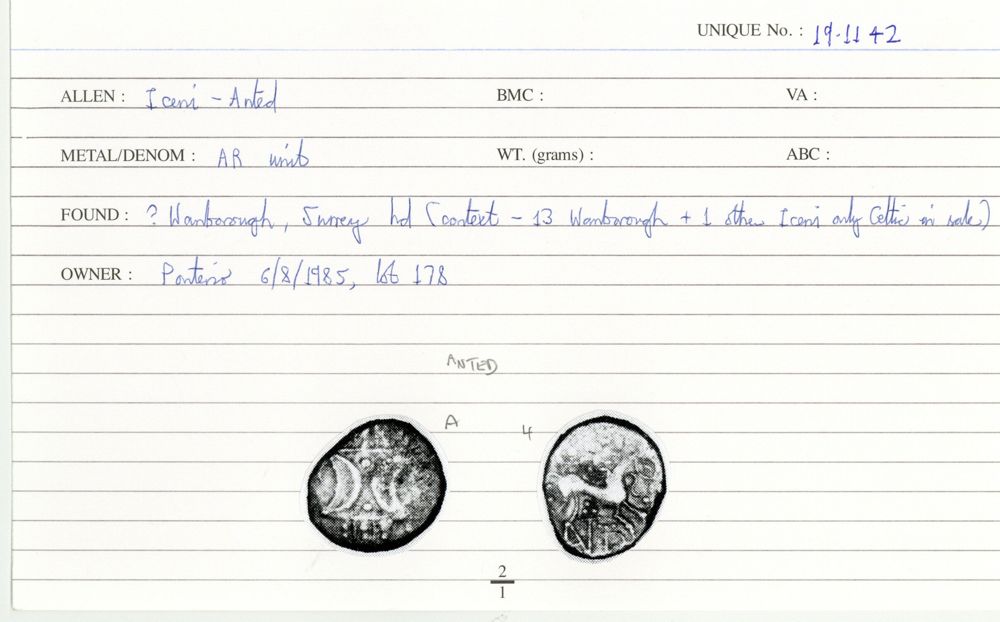 UNIQUE No. : 19·1142
ALLEN : Iceni - Anted BMC : VA :
METAL/DENOM : AR unit WT. (grams) : ABC :
FOUND : ? Wanborough, Surrey hd (context - 13 Wanborough + 1 other Iceni only Celtic in sale)
OWNER : 6/8/1985, lot 178
ANTED
A 4
2
1